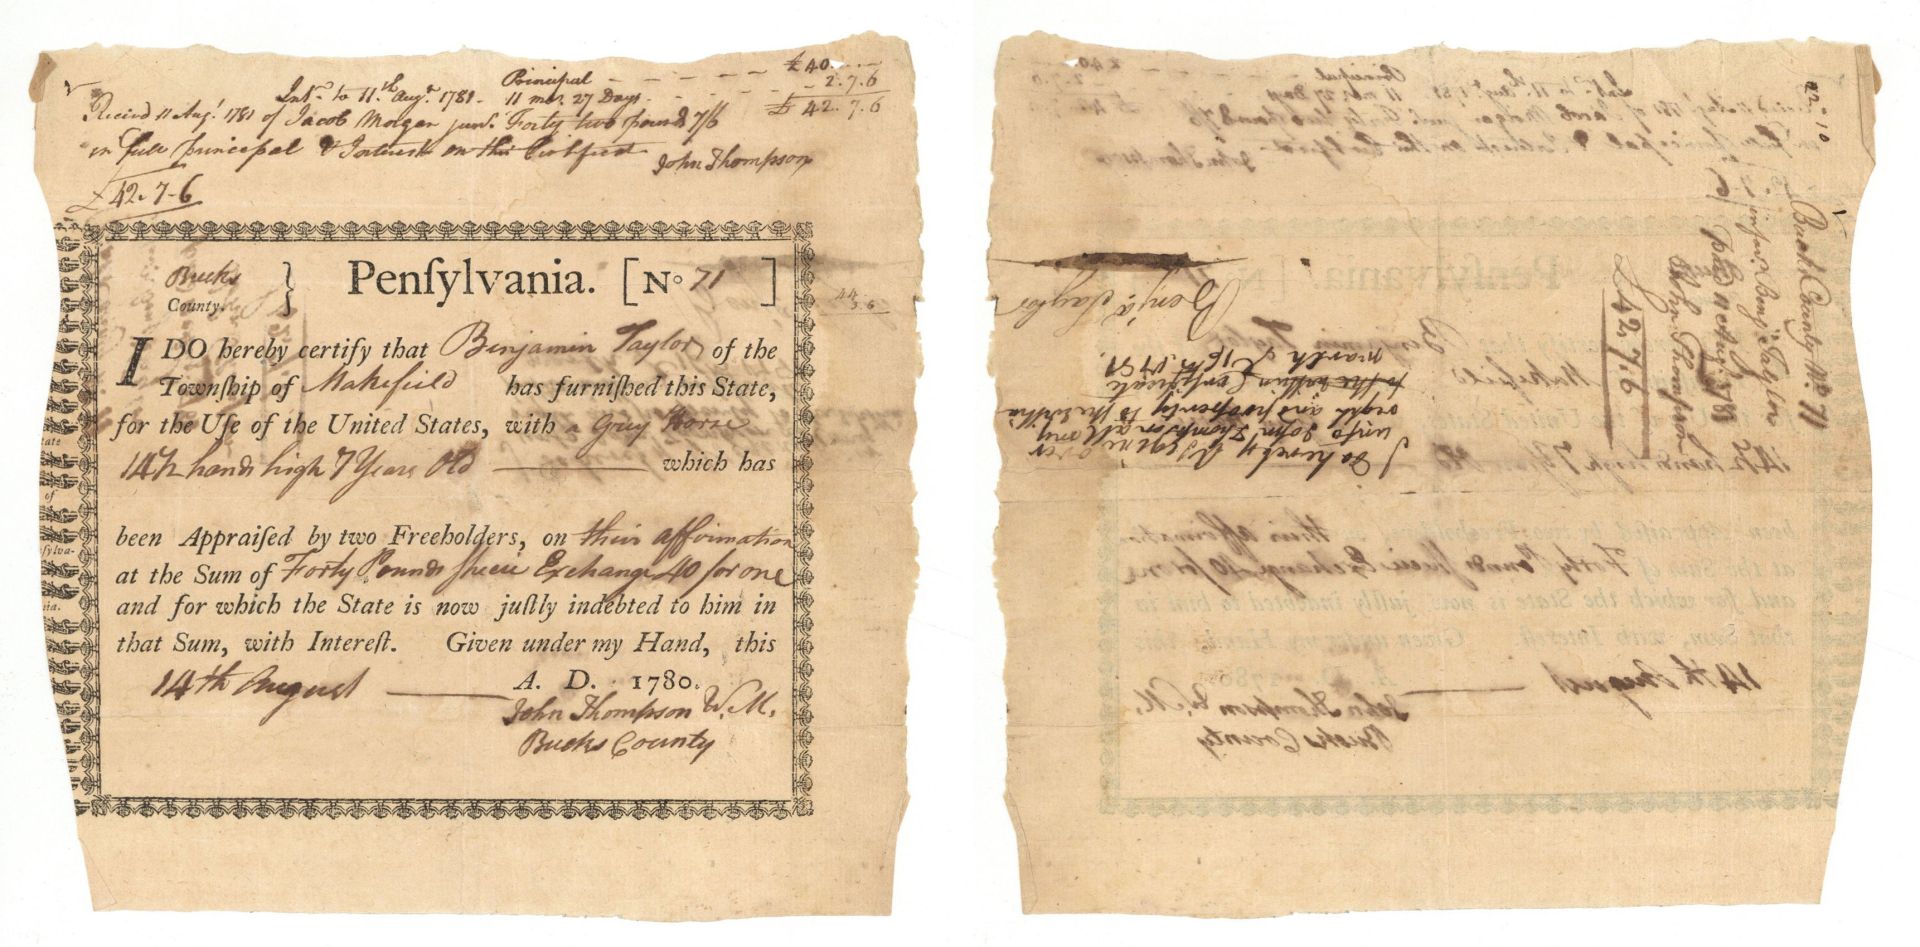 Principal - - - - - £40. - . -
Intt. to 11th. Augt. 1781 - 11 mos. 27 Days - - - - 2. 7. 6
£ 42. 7. 6
Receivd 11 Augt. 1781 of Jacob Morgan junr. Forty two pounds 7/6
in full principal & Interest on this Certificat
John Thompson
£42. 7-6
Bucks
County.
} Penſylvania. [No 71 ]
I DO hereby certify that Benjamin Taylor of the
Townſhip of Makefield has furniſhed this State,
for the Uſe of the United States, with a Grey Horse
14½ hands high 7 Years Old which has
been Appraiſed by two Freeholders, on their affirmation
at the Sum of Forty Pounds specie Exchange 40 for one
and for which the State is now juſtly indebted to him in
that Sum, with Intereſt. Given under my Hand, this
14th August A. D. 1780.
John Thompson W. M.
Bucks County
tate
of
ſylva-
ia.
44
5.6
22. 10
Bucks County No. 71
Benjn Taylor
paid 11 Augt. 1781
John Thompson
£42. 7. 6
I do hereby Assigne over
unto John Thompson all my
right and property to the within
to the within Certificate
march ye 16th. 1781.
Benja Taylor